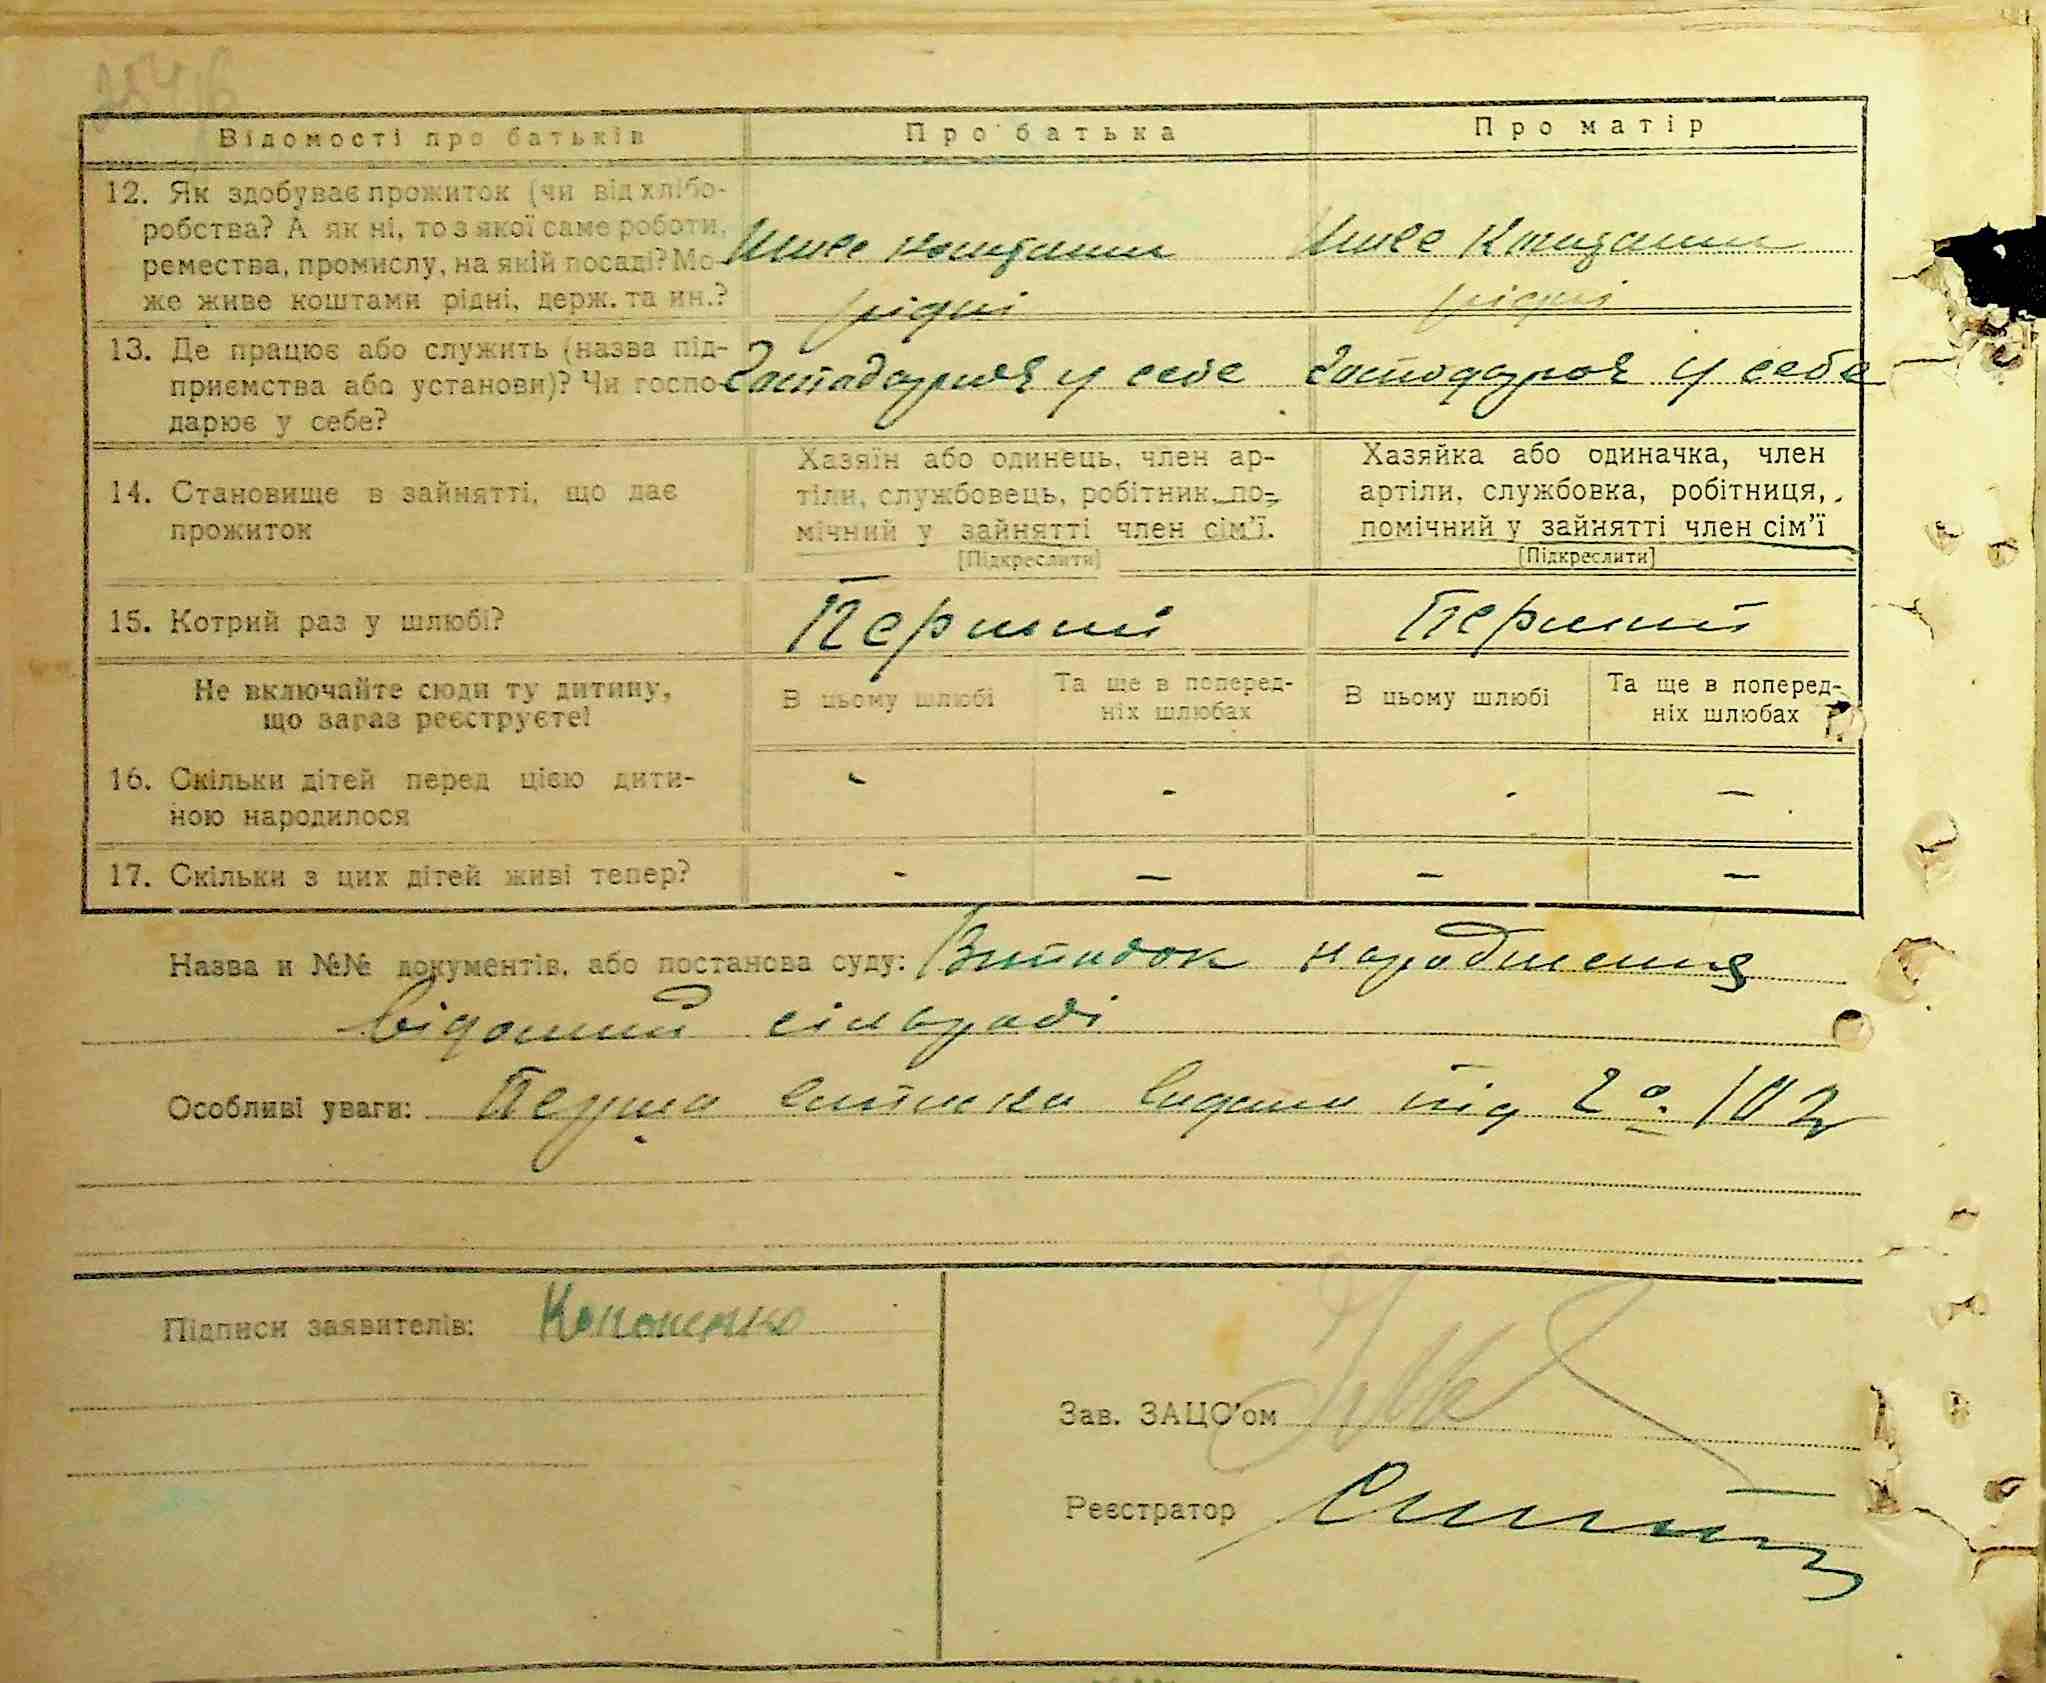 Відомості про батьків
Про батька
Про матір
12. Як здобуває прожиток (чи від хлібо-
робства? А як ні, то з якої саме роботи,
ремества, промислу, на якій посаді? Мо-
же живе коштами рідні, держ. та ин.?
Живе коштами
рідні
Живе коштами
рідні
13. Де працює або служить (назва під-
приємства або установи)? Чи госпо-
дарює у себе?
Господарює у себе
Господарює у себе
14. Становище в зайнятті, що дає
прожиток
Хазяїн або одинець, член ар-
тіли, службовець, робітник, по-
мічний у зайнятті член сім'ї.
[Підкреслити]
Хазяйка або одиначка, член
артіли, службовка, робітниця,
помічний у зайнятті член сім'ї
[Підкреслити]
15. Котрий раз у шлюбі?
Перший
Перший
Не включайте сюди ту дитину,
що зараз реєструєте!
В цьому шлюбі
Та ще в поперед-
ніх шлюбах
В цьому шлюбі
Та ще в поперед-
ніх шлюбах
16. Скільки дітей перед цією дити-
ною народилося
- - - -
17. Скільки з цих дітей живі тепер?
- - - -
Назва и №№ документів, або постанова суду: Випадок народження
відомий сільраді
Особливі уваги: Перша виписка видана під
Підписи заявителів:
Зав. ЗАЦС'ом
Реєстратор